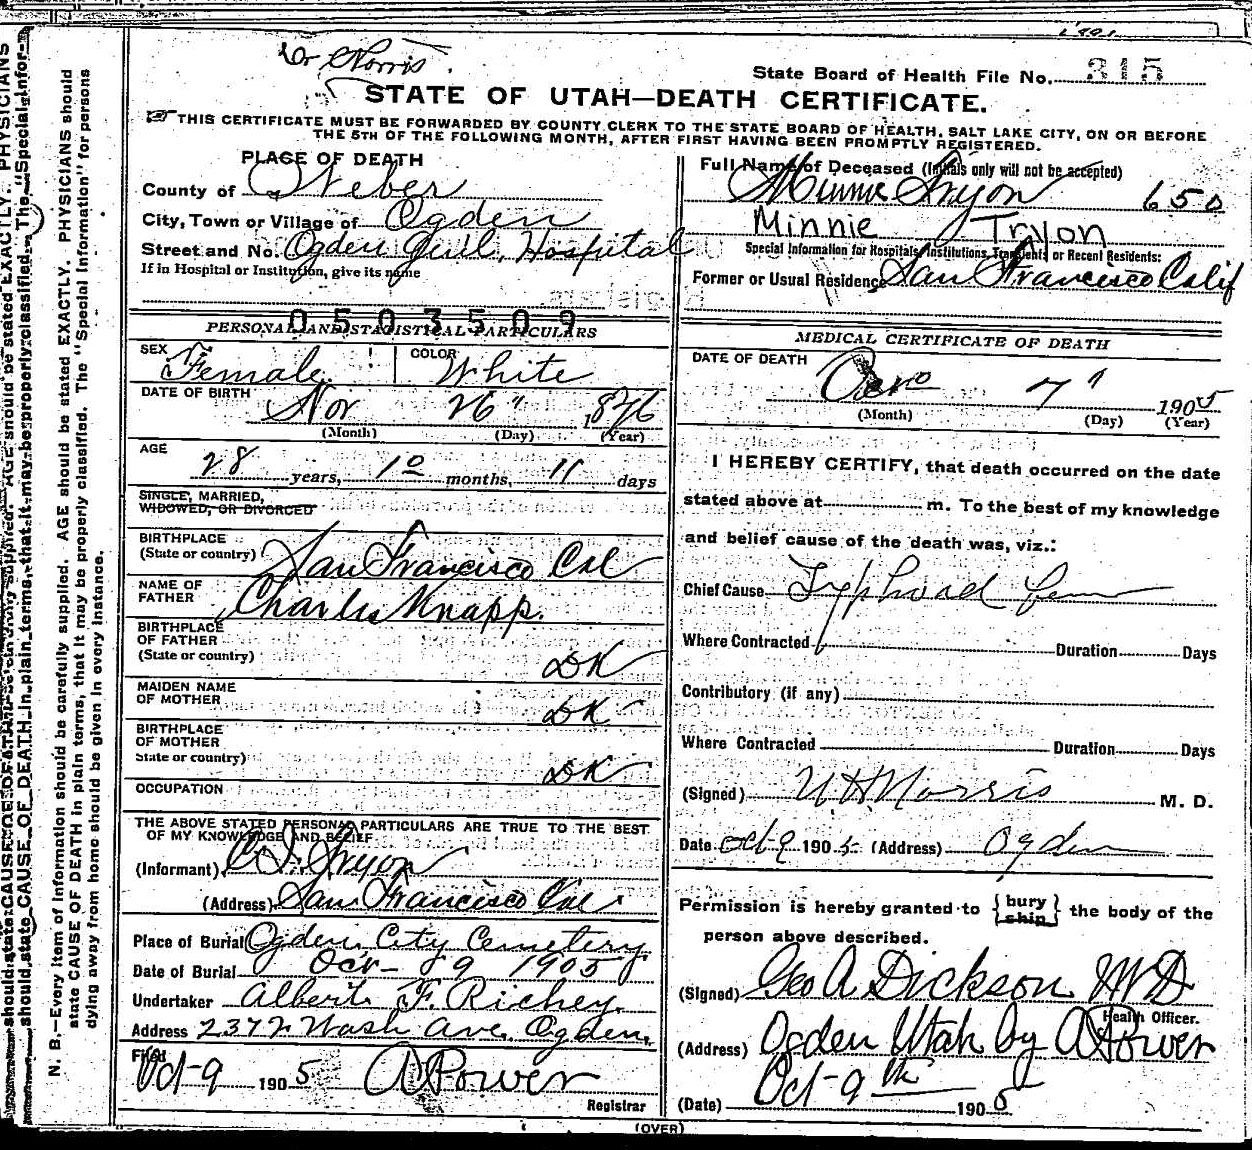 Dr Norris.
State Board of Health File No. 315
STATE OF UTAH—DEATH CERTIFICATE.
THIS CERTIFICATE MUST BE FORWARDED BY COUNTY CLERK TO THE STATE BOARD OF HEALTH, SALT LAKE CITY, ON OR BEFORE
THE 5TH OF THE FOLLOWING MONTH, AFTER FIRST HAVING BEEN PROMPTLY REGISTERED.
PLACE OF DEATH
County of Weber
City, Town or Village of Ogden
Street and No. Ogden Genl. Hospital
If in Hospital or Institution, give its name
0503509
PERSONAL AND STATISTICAL PARTICULARS
SEX Female COLOR White
DATE OF BIRTH Nov 26" 1876
(Month) (Day) (Year)
AGE 28 years, 10 months, 11 days
SINGLE, MARRIED,
WIDOWED, OR DIVORCED
BIRTHPLACE
(State or country) San Francisco Cal
NAME OF
FATHER Charles Knapp.
BIRTHPLACE
OF FATHER
(State or country) DK
MAIDEN NAME
OF MOTHER DK
BIRTHPLACE
OF MOTHER
State or country) DK
OCCUPATION
THE ABOVE STATED PERSONAL PARTICULARS ARE TRUE TO THE BEST
OF MY KNOWLEDGE AND BELIEF
(Informant) C. I. Tryon
(Address) San Francisco Cal
Place of Burial Ogden City Cemetery
Date of Burial Oct- 9 1905
Undertaker Albert F. Richey
Address 2372 Wash Ave. Ogden,
Filed Oct-9 1905 A Power
Registrar
Full Name of Deceased (Initials only will not be accepted)
Minnie Tryon 650
Minnie Tryon
Special Information for Hospitals, Institutions, Transients or Recent Residents:
Former or Usual Residence San Francisco Calif
MEDICAL CERTIFICATE OF DEATH
DATE OF DEATH 7" 1905
(Month) (Day) (Year)
I HEREBY CERTIFY, that death occurred on the date
stated above at m. To the best of my knowledge
and belief cause of the death was, viz.:
Chief Cause Typhoid fever
Where Contracted Duration Days
Contributory (if any)
Where Contracted Duration Days
(Signed) Norris M. D.
Date Oct 9 1905 (Address) Ogden
Permission is hereby granted to {bury ship} the body of the
person above described.
(Signed) Geo A Dickson MD
Health Officer.
(Address) Ogden Utah by A Power
(Date) Oct-9th 1905
(OVER)
N. B.—Every item of information should be carefully supplied. AGE should be stated EXACTLY. PHYSICIANS should
state CAUSE OF DEATH in plain terms, that it may be properly classified. The "Special Information" for persons
dying away from home should be given in every instance.